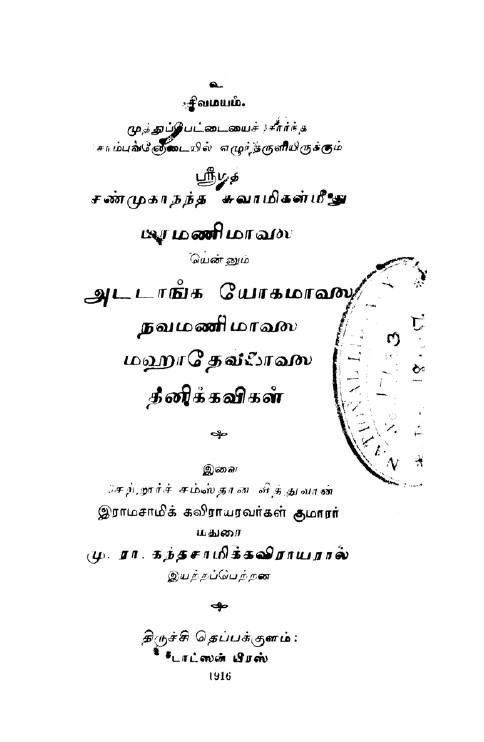 உ
சிவமயம்.
முத்துப்பேட்டையைச் சேர்ந்த
சாம்பவனோடையில் எழுந்தருளியிருக்கும்
ஸ்ரீமத்
சண்முகாநந்த சுவாமிகள்மீது
மணிமாலை
யென்னும்
அட்டாங்க யோகமாலை
நவமணிமாலை
மஹாதேவமாலை
தனிக்கவிகள்
இவை
சேற்றூர்ச் சமஸ்தான வித்துவான்
இராமசாமிக் கவிராயரவர்கள் குமாரர்
மதுரை
மு. ரா. கந்தசாமிக்கவிராயரால்
இயற்றப்பெற்றன
திருச்சி தெப்பக்குளம்:
டாட்ஸன் பிரஸ்
1916
NATIONAL LIBRARY